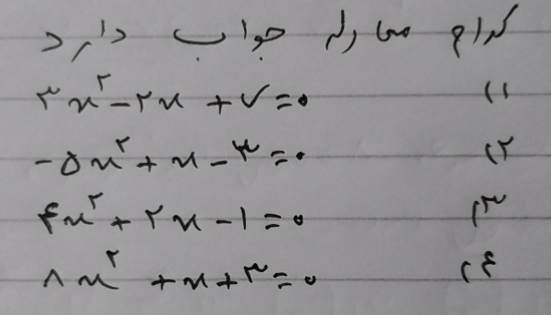 کدام معادله جواب دارد
۱) ۳x² - ۲x + ۷ = ۰
۲) -۵x² + x - ۳ = ۰
۳) ۴x² + ۲x - ۱ = ۰
۴) ۸x² + x + ۳ = ۰